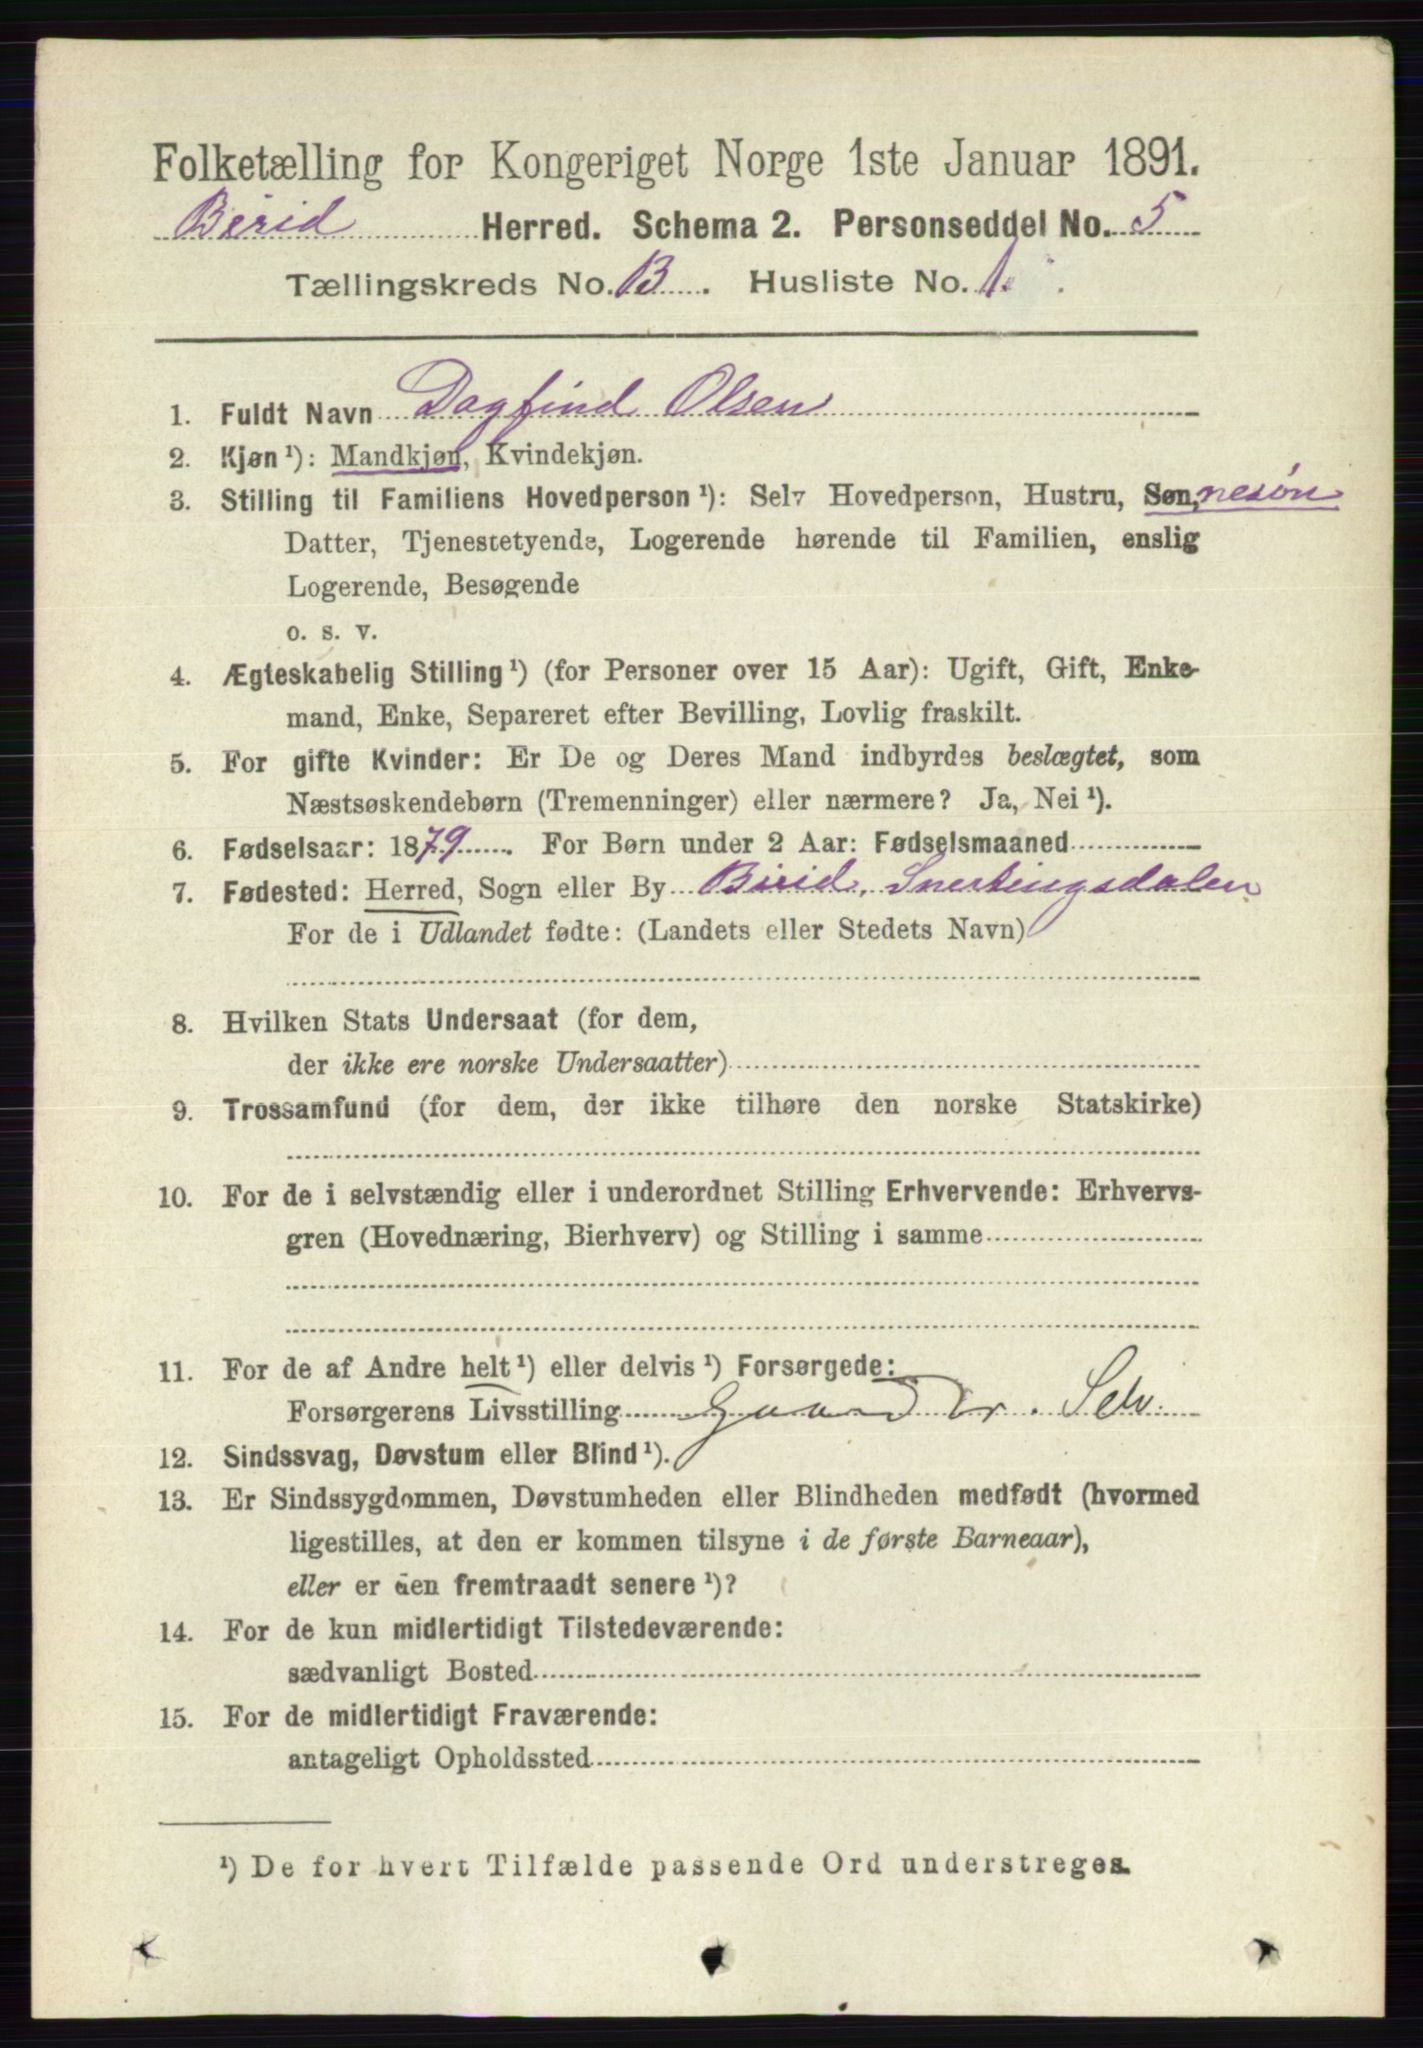 Folketælling for Kongeriget Norge 1ste Januar 1891.
Birid Herred. Schema 2. Personseddel No. 5
Tællingskreds No. B. Husliste No. 1.
1. Fuldt Navn Dagfind Olsen
2. Kjøn ¹): Mandkjøn, Kvindekjøn.
3. Stilling til Familiens Hovedperson ¹): Selv Hovedperson, Hustru, Søn, nesøn
Datter, Tjenestetyende, Logerende hørende til Familien, enslig
Logerende, Besøgende
o. s. v.
4. Ægteskabelig Stilling ¹) (for Personer over 15 Aar): Ugift, Gift, Enke-
mand, Enke, Separeret efter Bevilling, Lovlig fraskilt.
5. For gifte Kvinder: Er De og Deres Mand indbyrdes beslægtet, som
Næstsøskendebørn (Tremenninger) eller nærmere? Ja, Nei ¹).
6. Fødselsaar: 1879. For Børn under 2 Aar: Fødselsmaaned
7. Fødested: Herred, Sogn eller By Birid, Snertingsdalen
For de i Udlandet fødte: (Landets eller Stedets Navn)
8. Hvilken Stats Undersaat (for dem,
der ikke ere norske Undersaatter)
9. Trossamfund (for dem, der ikke tilhøre den norske Statskirke)
10. For de i selvstændig eller i underordnet Stilling Erhvervende: Erhvervs-
gren (Hovednæring, Bierhverv) og Stilling i samme
11. For de af Andre helt ¹) eller delvis ¹) Forsørgede:
Forsørgerens Livsstilling Gaardbr. Selv.
12. Sindssvag, Døvstum eller Blind ¹).
13. Er Sindssygdommen, Døvstumheden eller Blindheden medfødt (hvormed
ligestilles, at den er kommen tilsyne i de første Barneaar),
eller er den fremtraadt senere ¹)?
14. For de kun midlertidigt Tilstedeværende:
sædvanligt Bosted
15. For de midlertidigt Fraværende:
antageligt Opholdssted
¹) De for hvert Tilfælde passende Ord understreges.